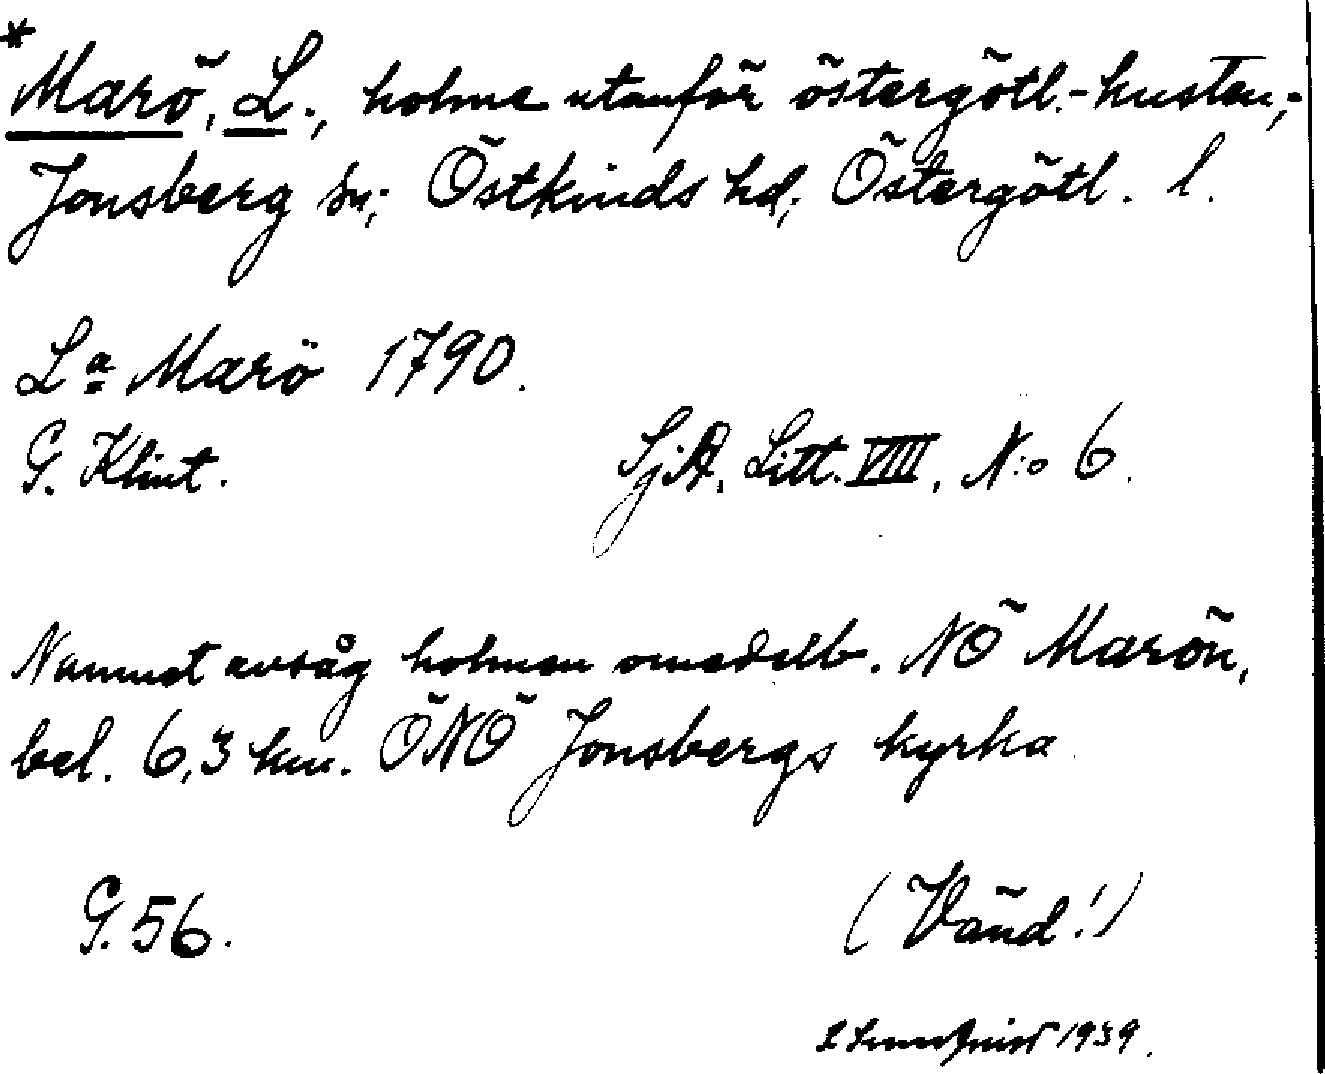 * Marö, L., holme utanför östergötl.-kusten,
Jonsberg sn; Östkinds hd; Östergötl. l.
La Marö 1790.
G. Klint. SjA. Litt. VIII, N:o 6.
Namnet avsåg holmen omedelb. NÖ Marön,
bel. 6,3 km. ÖNÖ Jonsbergs kyrka.
G. 56. (Vänd!)
1939.